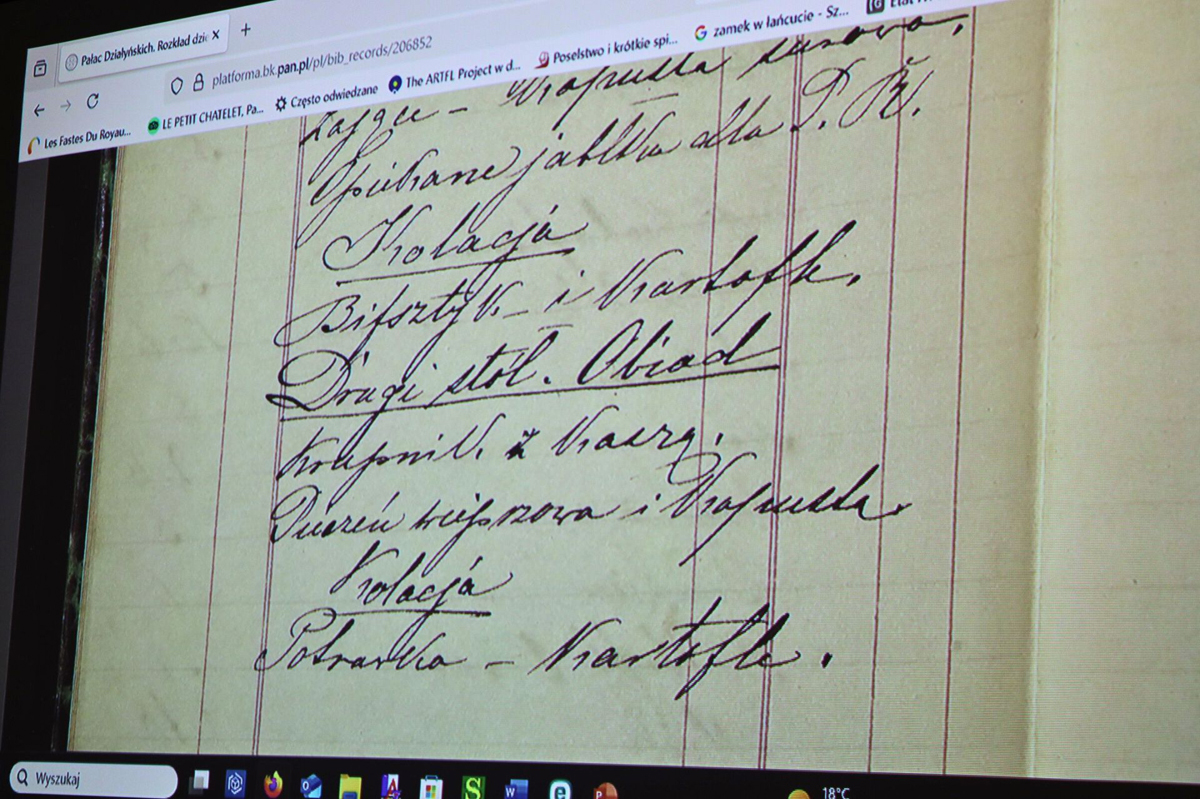 Pałac Działyńskich. Rozkład dzie
platforma.bk.pan.pl/pl/bib_records/206852
Les Fastes Du Royau...
LE PETIT CHATELET, Pa...
Często odwiedzane
The ARTFL Project w d...
Poselstwo i krótkie spi...
zamek w łańcucie - Sz...
Zające – Kapusta surowa.
Opiekane jabłka dla P. K.
Kolacja
Bifsztyk – i Kartofle.
Drugi stół. Obiad
Krupnik z Kaszą.
Pieczeń wieprzowa i Kapusta.
Kolacja
Potrawka – Kartofle.
Wyszukaj
18°C